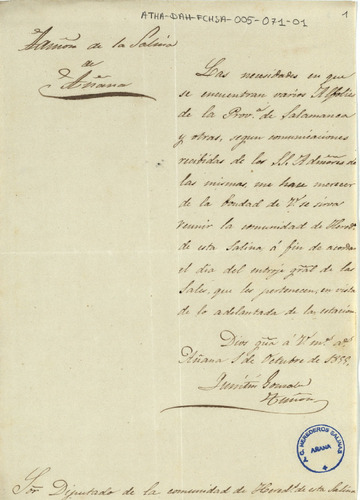 ATHA-DAH-FCHSA-005-071-01
1
Admon de la Salina
de
Añana
Las necesidades en que
se encuentran varios Alfolies
de la Provª de Salamanca
y otras, segun comunicaciones
recibidas de los SS. Admores de
las mismas, me hace merecer
de la bondad de V. se sirva
reunir la comunidad de Hereds
de esta Salina á fin de acordar
el dia del entroje gral de las
Sales, que les pertenecen, en vista
de lo adelantada de la estacion.
Dios gue á V. ms as
Añana 1 de Octubre de 1859.
Quintin
Muñoz
HEREDEROS SALINAS
AÑANA
Sor Diputado de la comunidad de Hereds de esta Salina